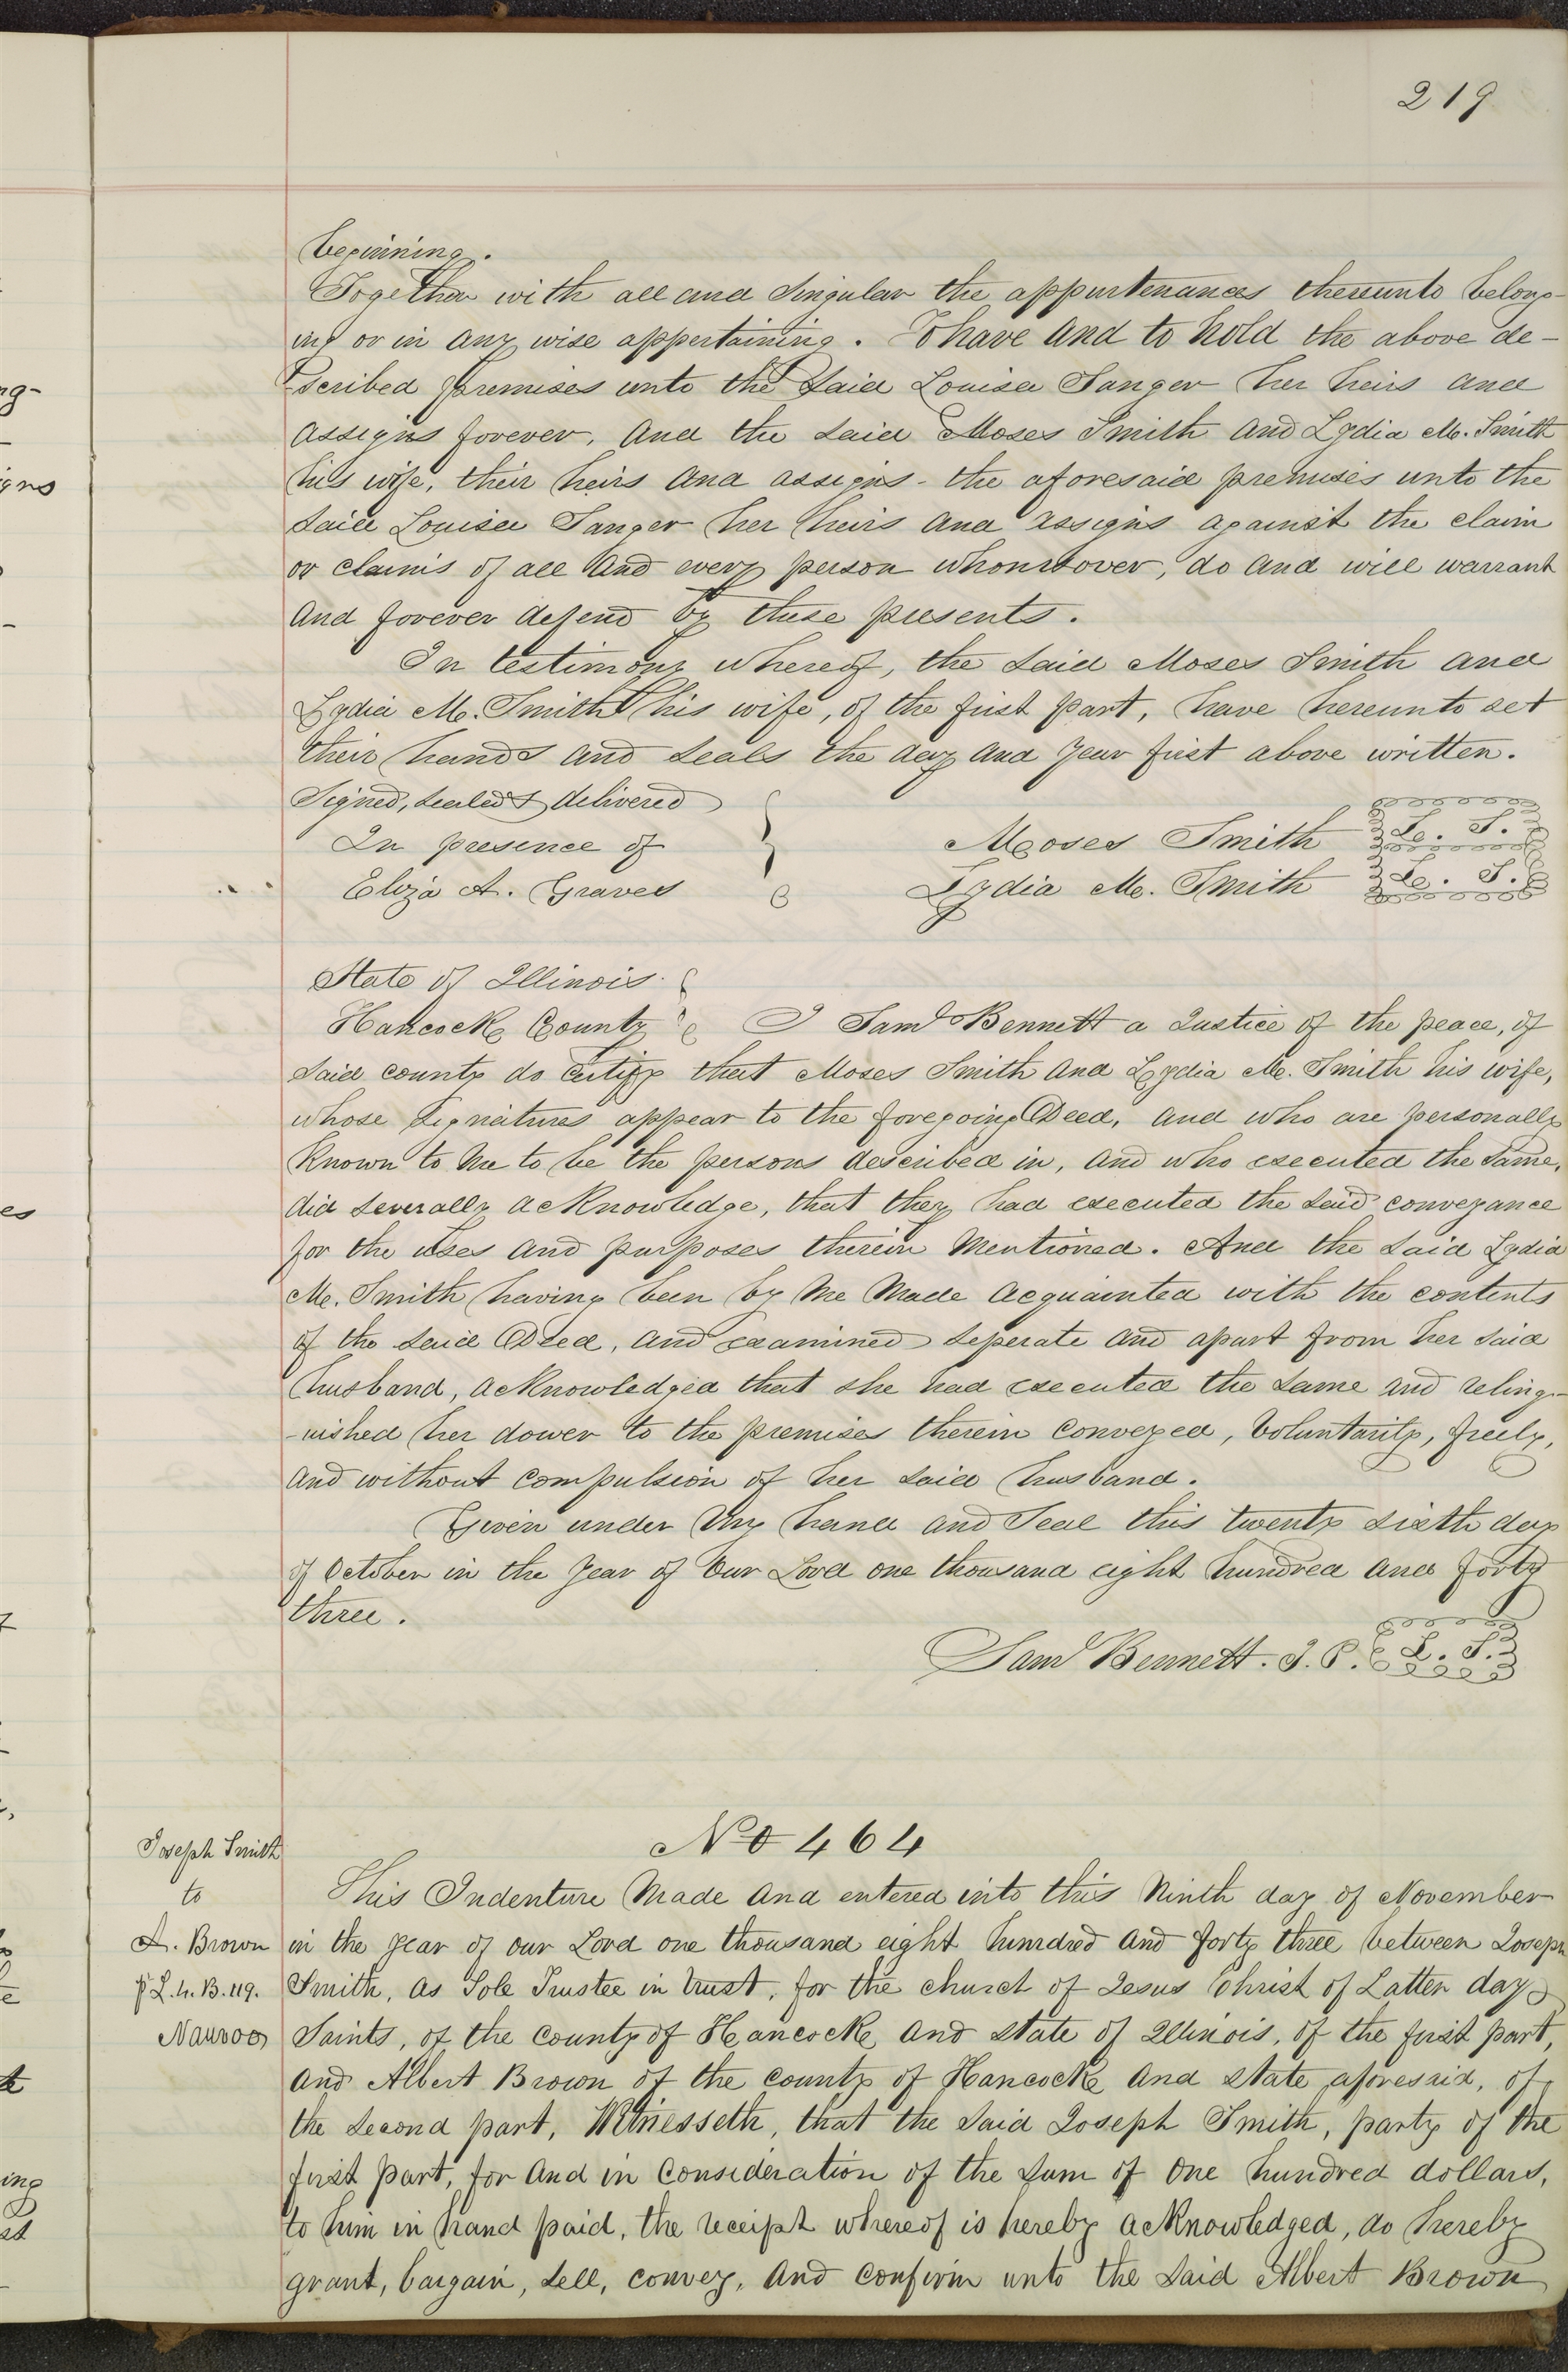 219
beginning.
Together with all and Singular the appurtenances thereunto belong-
ing or in any wise appertaining. To have and to hold the above de-
scribed premises unto the Said Louisa Sanger her heirs and
assigns forever, And the said Moses Smith and Lydia M. Smith
his wife, their heirs and assigns - the aforesaid premises unto the
Said Louisa Sanger her heirs and assigns against the claim
or claims of all and every person whomsoever, do and will warrant
and forever defend by these presents.
In testimony whereof, the said Moses Smith and
Lydia M. Smith his wife, of the first part, have hereunto set
their hands and seals the day and year first above written.
Signed, sealed & delivered
In presence of
Moses Smith L. S.
Eliza A. Graves
Lydia M. Smith L. S.
State of Illinois
Hancock County I Saml Bennett a Justice of the peace, of
said county do certify that Moses Smith and Lydia M. Smith his wife,
whose signatures appear to the foregoing Deed, and who are personally
known to me to be the persons described in, and who executed the same,
did severally acknowledge, that they had executed the said conveyance
for the uses and purposes therein mentioned. And the said Lydia
M. Smith having been by me made acquainted with the contents
of the said Deed, and examined seperate and apart from her said
husband, acknowledged that she had executed the same and relinq-
-uished her dower to the premises therein conveyed, voluntarily, freely,
and without compulsion of her said husband.
Given under my hand and Seal this twenty sixth day
of October in the year of our Lord one thousand eight hundred and forty
three.
Saml Bennett. J. P. L. S.
No 464
Joseph Smith
to
A. Brown
p L. 4. B. 119.
Nauvoo
This Indenture made and entered into this Ninth day of November
in the year of our Lord one thousand eight hundred and forty three between Joseph
Smith, as Sole Trustee in trust, for the church of Jesus Christ of Latter day
Saints, of the county of Hancock and state of Illinois, of the first part,
and Albert Brown of the county of Hancock and state aforesaid, of
the second part, Witnesseth, that the said Joseph Smith, party of the
first part, for and in consideration of the sum of One hundred dollars,
to him in hand paid, the receipt whereof is hereby acknowledged, do hereby
grant, bargain, sell, convey, and confirm unto the said Albert Brown